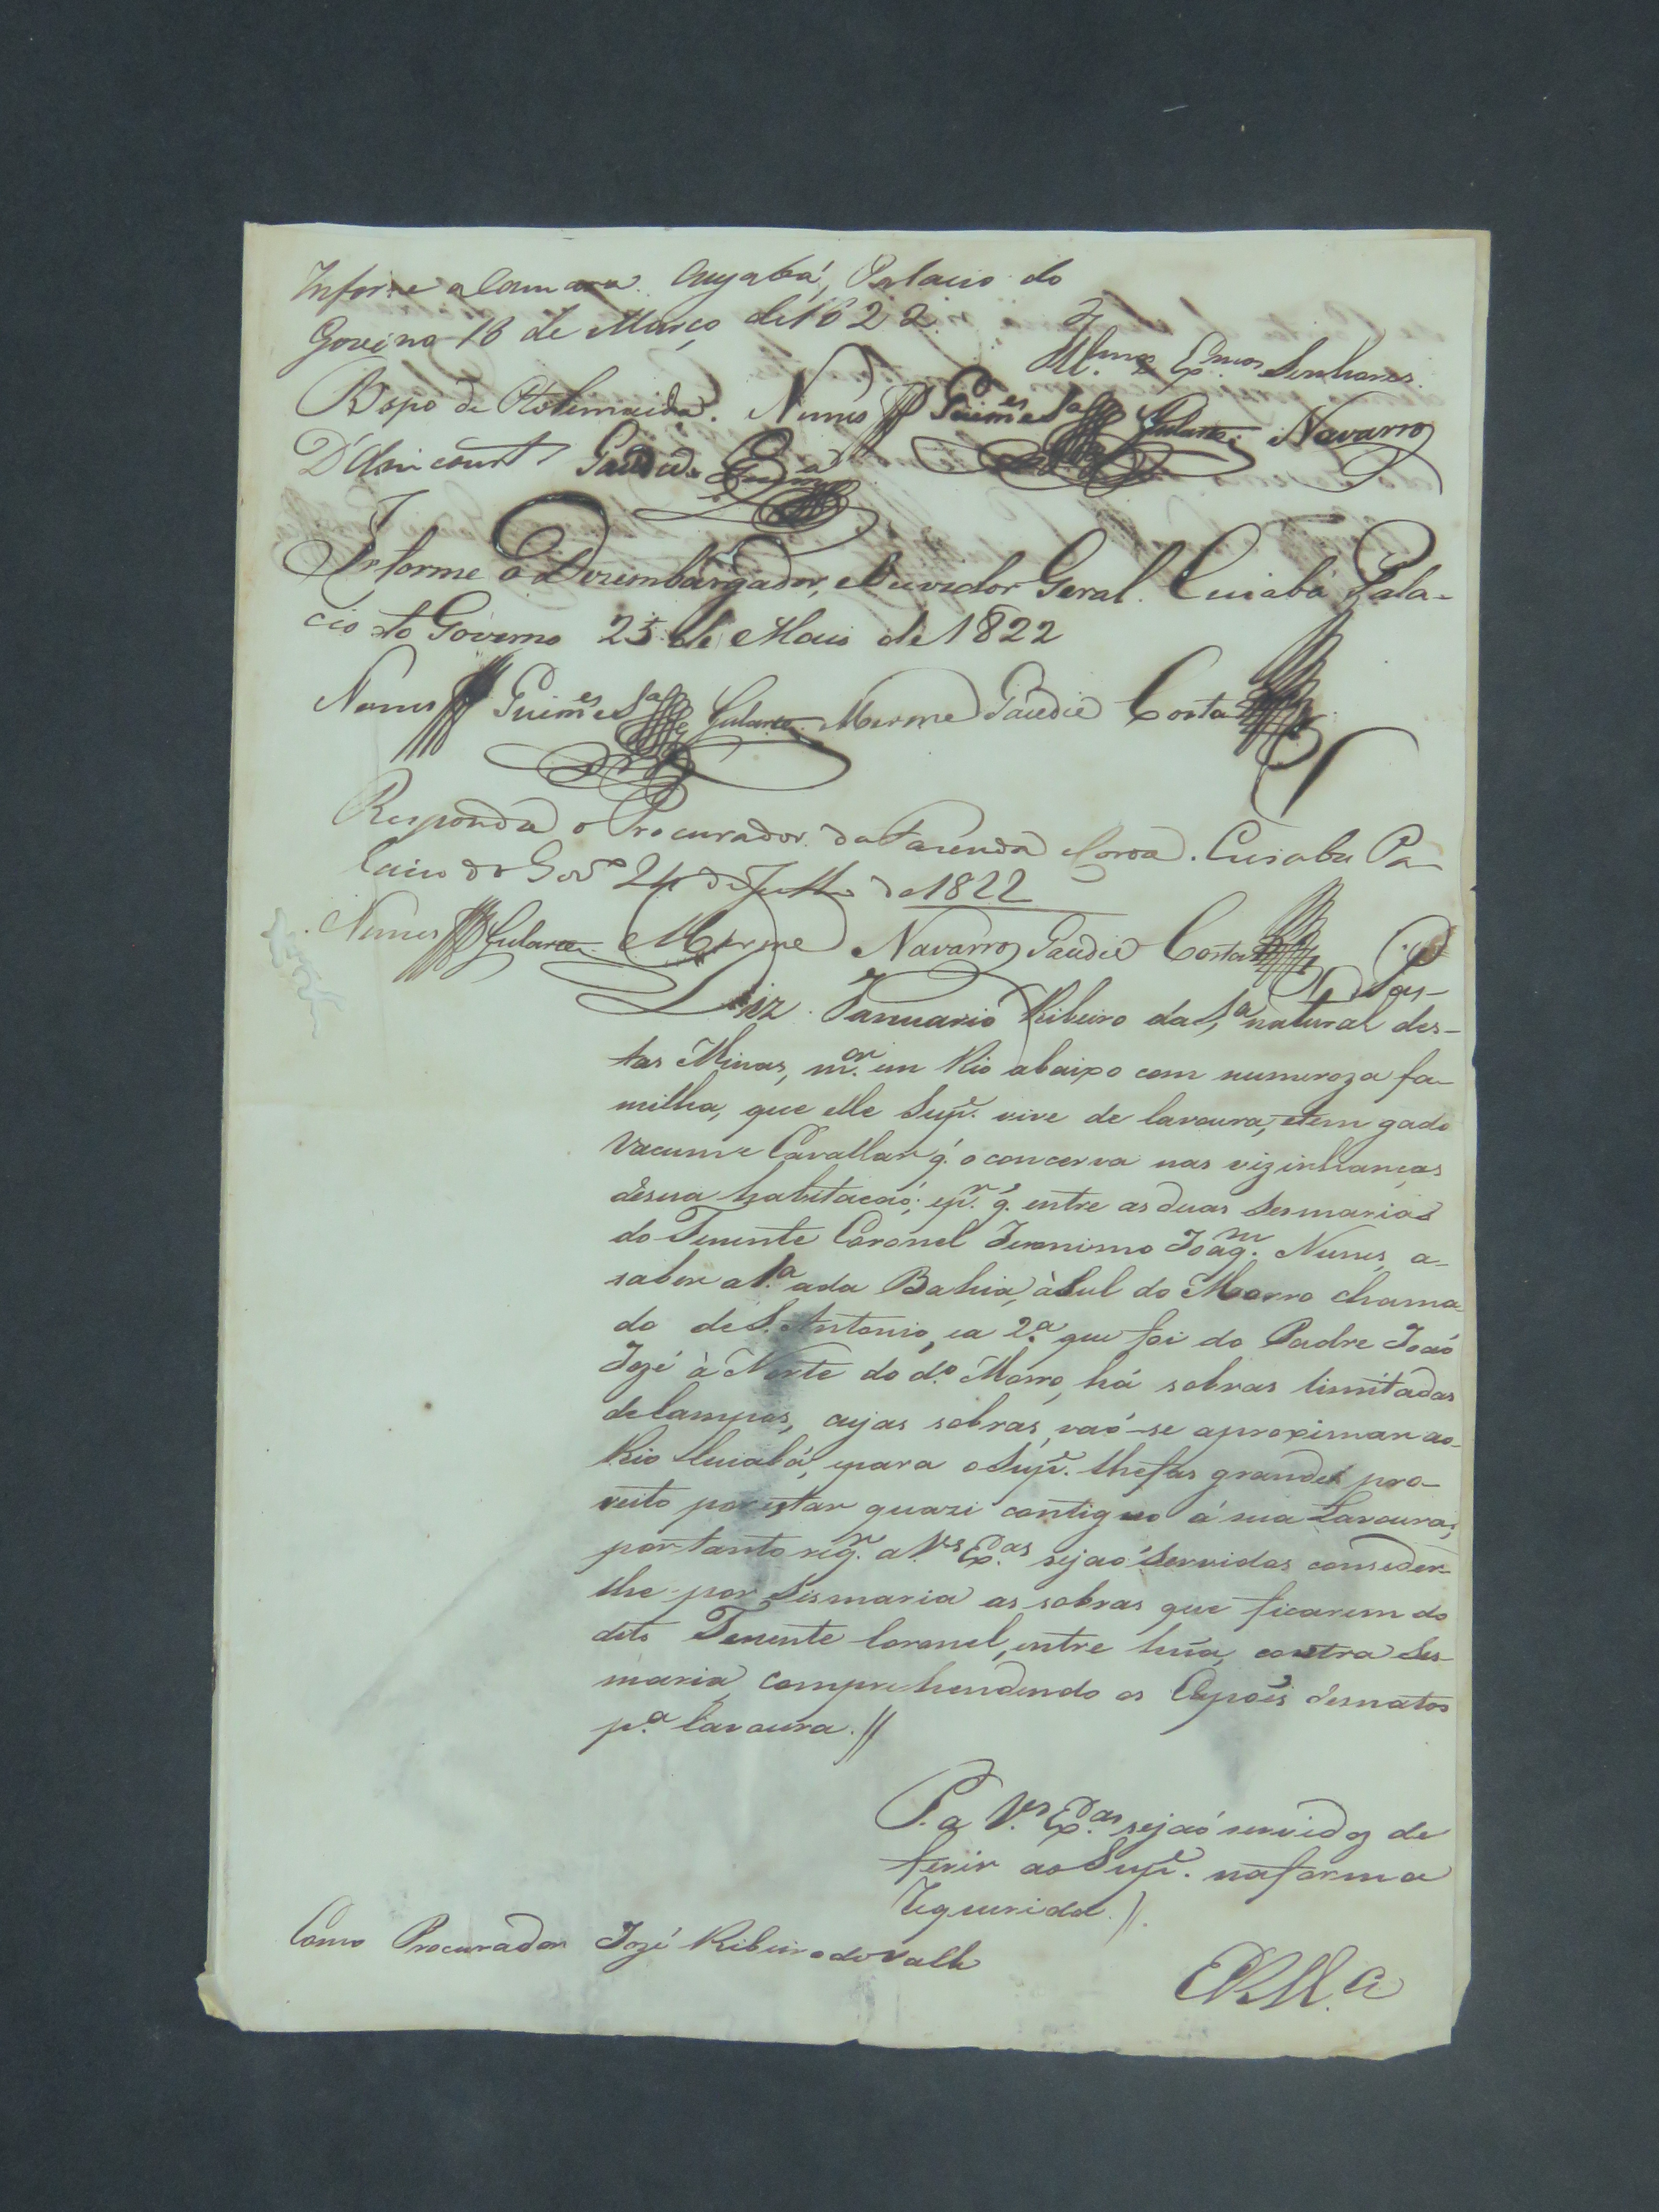 Informe a Camara. Cuyabá, Palacio do
Governo 16 de Março de 1822.
Illmos. e Exmos. Senhores.
Bispo de Ptolemaida. Nunes Guimes Sa Gularte. Navarro
D'Alincourt Gaudie
Informe o Dezembargador, e Ouvidor Geral. Cuiabá Pala-
cio do Governo 25 de Maio de 1822
Nunes Guimes Sa Gularte. Merme Gaudie Costa
Responda o Procurador da Fazenda e Coroa. Cuiaba Pa
lacio do Govo 24 de Julho de 1822
Nunes Gularte. Merme Navarro Gaudie Costa P. Pas-
Diz Januario Ribeiro da Sa. natural des-
tas Minas, mor. em Rio abaixo com numeroza fa-
milha, que elle Supe. vive de lavoura, e tem gado
Vacum e Cavallar q. o concerva nas vizinhanças
de sua habitacaó; e pr. q. entre as duas Sesmarias
do Tenente Coronel Jeronimo Joaqm. Nunes, a-
saber a 1a. a da Bahia, à Sul do Morro chama
do de S. Antonio, e a 2a. que foi do Padre Joaó
Jozé à Norte do do. Morro, há sobras limitadas
de Campos, cujas sobras, vaó-se aproximar ao-
Rio Cuiabá, e para o Supe. lhe fas grande pro-
veito por estar quazi contiguo á sua Lavoura;
por tanto reqr. a Vs. Exas. sejaó Servidos conseder-
lhe por Sismaria as sobras que ficarem do
dito Tenente Coronel, entre huã, e outra Ses-
maria, comprehendendo os Capoẽs de matos
pa. lavoura.//
P. a Vs. Exas. sejaó servidoz de
ferir ao Supe. na forma
requerida.//.
Como Procurador Jozé Ribeiro do Valle
E R Mca